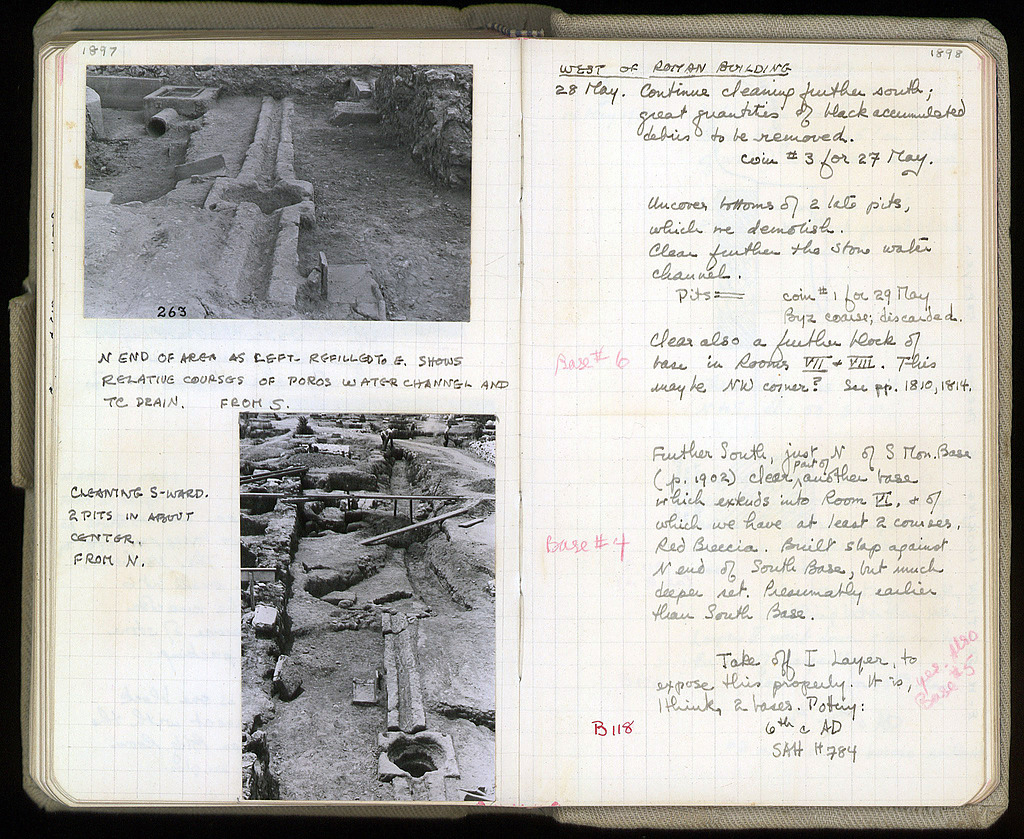 1897
263
N END OF AREA AS LEFT - REFILLED TO E. SHOWS
RELATIVE COURSES OF POROS WATER CHANNEL AND
TC DRAIN. FROM S.
CLEANING S-WARD.
2 PITS IN ABOUT
CENTER.
FROM N.
1898
WEST OF ROMAN BUILDING
28 May. Continue cleaning further south;
great quantities of black accumulated
debris to be removed.
coin #3 for 27 May.
Uncover bottoms of 2 late pits,
which we demolish.
Clear further the stone water
channel.
Pits = coin #1 for 29 May
Byz coarse; discarded.
Clear also a further block of
Base #6 base in Rooms VII + VIII. This
may be NW corner? See pp. 1810, 1814.
Further South, just N of S Mon. Base
(p. 1902) clear part of another base
which extends into Room VI, + of
which we have at least 2 courses.
Base #4 Red Breccia. Built slap against
N end of South Base, but much
deeper set. Presumably earlier
than South Base.
Take off I Layer, to
expose this properly. It is,
I think, 2 bases. Pottery:
yes. Also
Base #5
B 118 6th c AD
SAH # 784